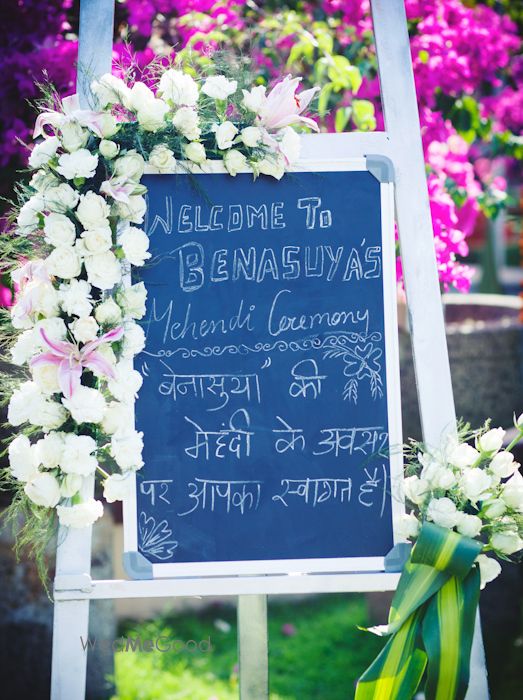 WELCOME TO
BENASUYA'S
Mehendi Ceremony
"बेनासुया" की
मेहंदी के अवसर
पर आपका स्वागत है।
WedMeGood